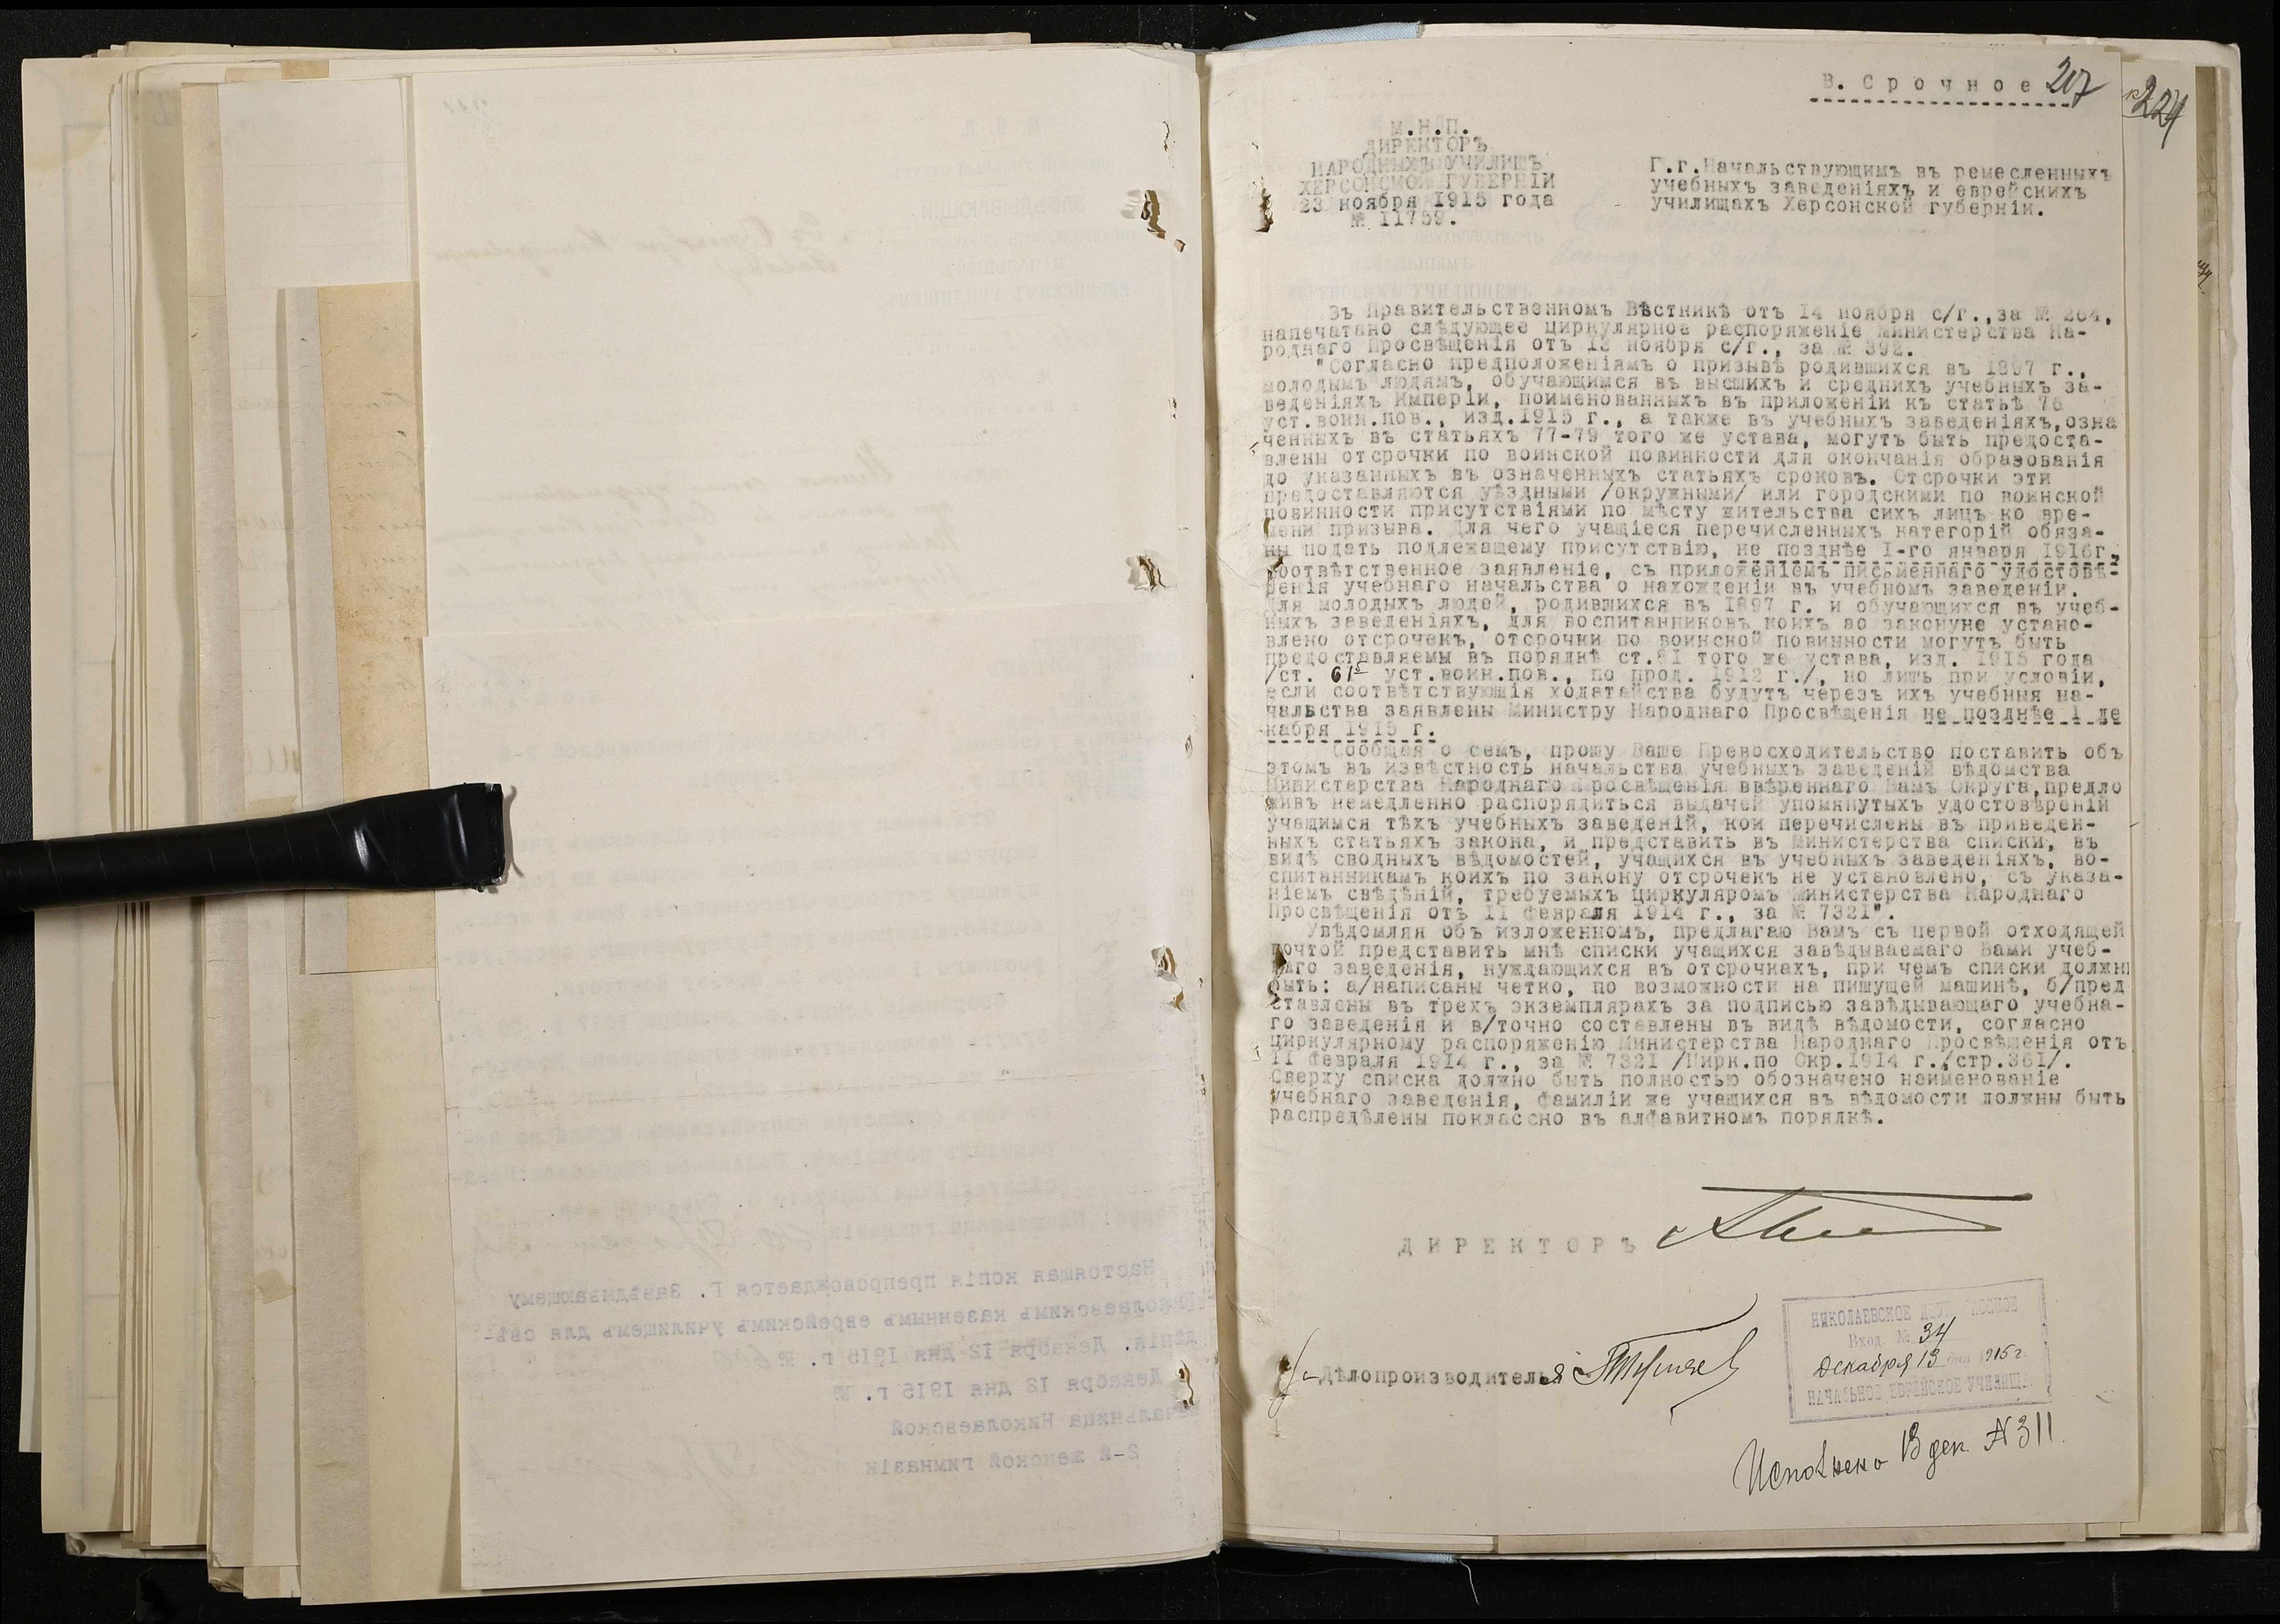 В. Срочное 207
224
М.Н.П.
ДИРЕКТОРЪ
НАРОДНЫХЪ УЧИЛИЩЪ
ХЕРСОНСКОЙ ГУБЕРНІИ
23 ноября 1915 года
№ 11759.
Г.г.Начальствующимъ въ ремесленныхъ
учебныхъ заведеніяхъ и еврейскихъ
училищахъ Херсонской губерніи.
Въ Правительственномъ Вѣстникѣ отъ 14 ноября с/г.,за № 264,
напечатано слѣдующее циркулярное распоряженіе Министерства На-
роднаго Просвѣщенія отъ 13 ноября с/г., за № 392.
"Согласно предположеніямъ о призывѣ родившихся въ 1897 г.,
молодымъ людямъ, обучающимся въ высшихъ и среднихъ учебныхъ за-
веденіяхъ Имперіи, поименованныхъ въ приложеніи къ статьѣ 76
уст.воин.пов., изд.1915 г., а также въ учебныхъ заведеніяхъ,озна
ченныхъ въ статьяхъ 77-79 того же устава, могутъ быть предоста-
влены отсрочки по воинской повинности для окончанія образованія
до указанныхъ въ означенныхъ статьяхъ сроковъ. Отсрочки эти
предоставляются уѣздными /окружными/ или городскими по воинской
повинности присутствіями по мѣсту жительства сихъ лицъ ко вре-
мени призыва. Для чего учащіеся перечисленныхъ категорій обяза-
ны подать подлежащему присутствію, не позднѣе I-го января 1916г.,
соотвѣтственное заявленіе, съ приложеніемъ письменнаго удостовѣ-
ренія учебнаго начальства о нахожденіи въ учебномъ заведеніи.
Для молодыхъ людей, родившихся въ 1897 г. и обучающихся въ учеб-
ныхъ заведеніяхъ, для воспитанниковъ коихъ по законуне устано-
влено отсрочекъ, отсрочки по воинской повинности могутъ быть
предоставляемы въ порядкѣ ст.81 того же устава, изд. 1915 года
/ст. 61⁵ уст.воин.пов., по прод. 1912 г./, но лишь при условіи,
если соотвѣтствующія ходатайства будутъ черезъ ихъ учебныя на-
чальства заявлены Министру Народнаго Просвѣщенія не позднѣе 1 де
кабря 1915 г.
Сообщая о семъ, прошу Ваше Превосходительство поставить объ
этомъ въ извѣстность начальства учебныхъ заведеній вѣдомства
Министерства Народнаго Просвѣщенія ввѣреннаго Вамъ Округа,предло
живъ немедленно распорядиться выдачей упомянутыхъ удостовѣреній
учащимся тѣхъ учебныхъ заведеній, кои перечислены въ приведен-
ныхъ статьяхъ закона, и представить въ Министерства списки, въ
видѣ сводныхъ вѣдомостей, учащихся въ учебныхъ заведеніяхъ, во-
спитанникамъ коихъ по закону отсрочекъ не установлено, съ указа-
ніемъ свѣдѣній, требуемыхъ циркуляромъ Министерства Народнаго
Просвѣщенія отъ 11 февраля 1914 г., за № 7321".
Увѣдомляя объ изложенномъ, предлагаю Вамъ съ первой отходящей
почтой представить мнѣ списки учащихся завѣдываемаго Вами учеб-
наго заведенія, нуждающихся въ отсрочкахъ, при чемъ списки должн
быть: а/написаны четко, по возможности на пишущей машинѣ, б/пред
ставлены въ трехъ экземплярахъ за подписью завѣдывающаго учебна-
го заведенія и в/точно составлены въ видѣ вѣдомости, согласно
циркулярному распоряженію Министерства Народнаго Просвѣщенія отъ
11 февраля 1914 г., за № 7321 /Цирк.по Окр.1914 г.,стр.361/.
Сверху списка должно быть полностью обозначено наименованіе
учебнаго заведенія, фамиліи же учащихся въ вѣдомости должны быть
распредѣлены поклассно въ алфавитномъ порядкѣ.
ДИРЕКТОРЪ
Дѣлопроизводителя
НИКОЛАЕВСКОЕ ДВУХКЛАССНОЕ
Вход. № 34
Декабря 13 дня 1915 г.
НАЧАЛЬНОЕ ЕВРЕЙСКОЕ УЧИЛИЩЕ
Исполнено 13 дек. № 311
Настоящая копія препровождается Г. Завѣдывающему
Николаевскимъ казеннымъ еврейскимъ училищемъ для свѣ-
дѣнія. Декабря 12 дня 1915 г. №
Декабря 12 дня 1915 г. №
Начальница Николаевской
2-й женской гимназіи